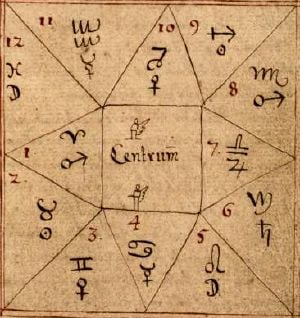 11 ♒ ☿
10 ♀
9 ♐
12 ♓ ☽
8 ♏ ♂
1 ♈ ♂
Centrum
7. ♎ ♃
2. ♉ ☉
6 ♍ ♄
3. ♊ ♀
4 ♋ ☿
5 ♌ ☽